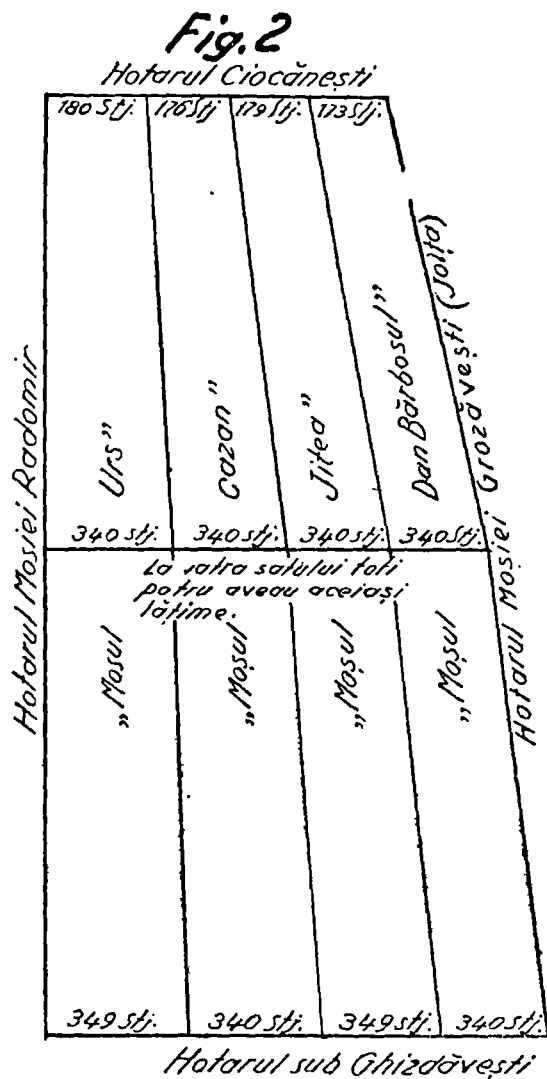 Fig. 2
Hotarul Ciocănești
180 Stj. 176 Stj 179 Stj. 173 Stj.
Hotarul Moșiei Radomir
Urs”
Cazan”
Jitea”
Dan Bărbosul”
Hotarul Moșiei Grozăvești (Joița)
340 stj. 340 stj. 340 stj. 340 Stj.
La vatra satului toti
patru aveau aceiași
lățime.
„Moșul
„Moșul
„Moșul
„Moșul
349 stj. 340 stj. 349 stj. 340 stj.
Hotarul sub Ghizdăvești